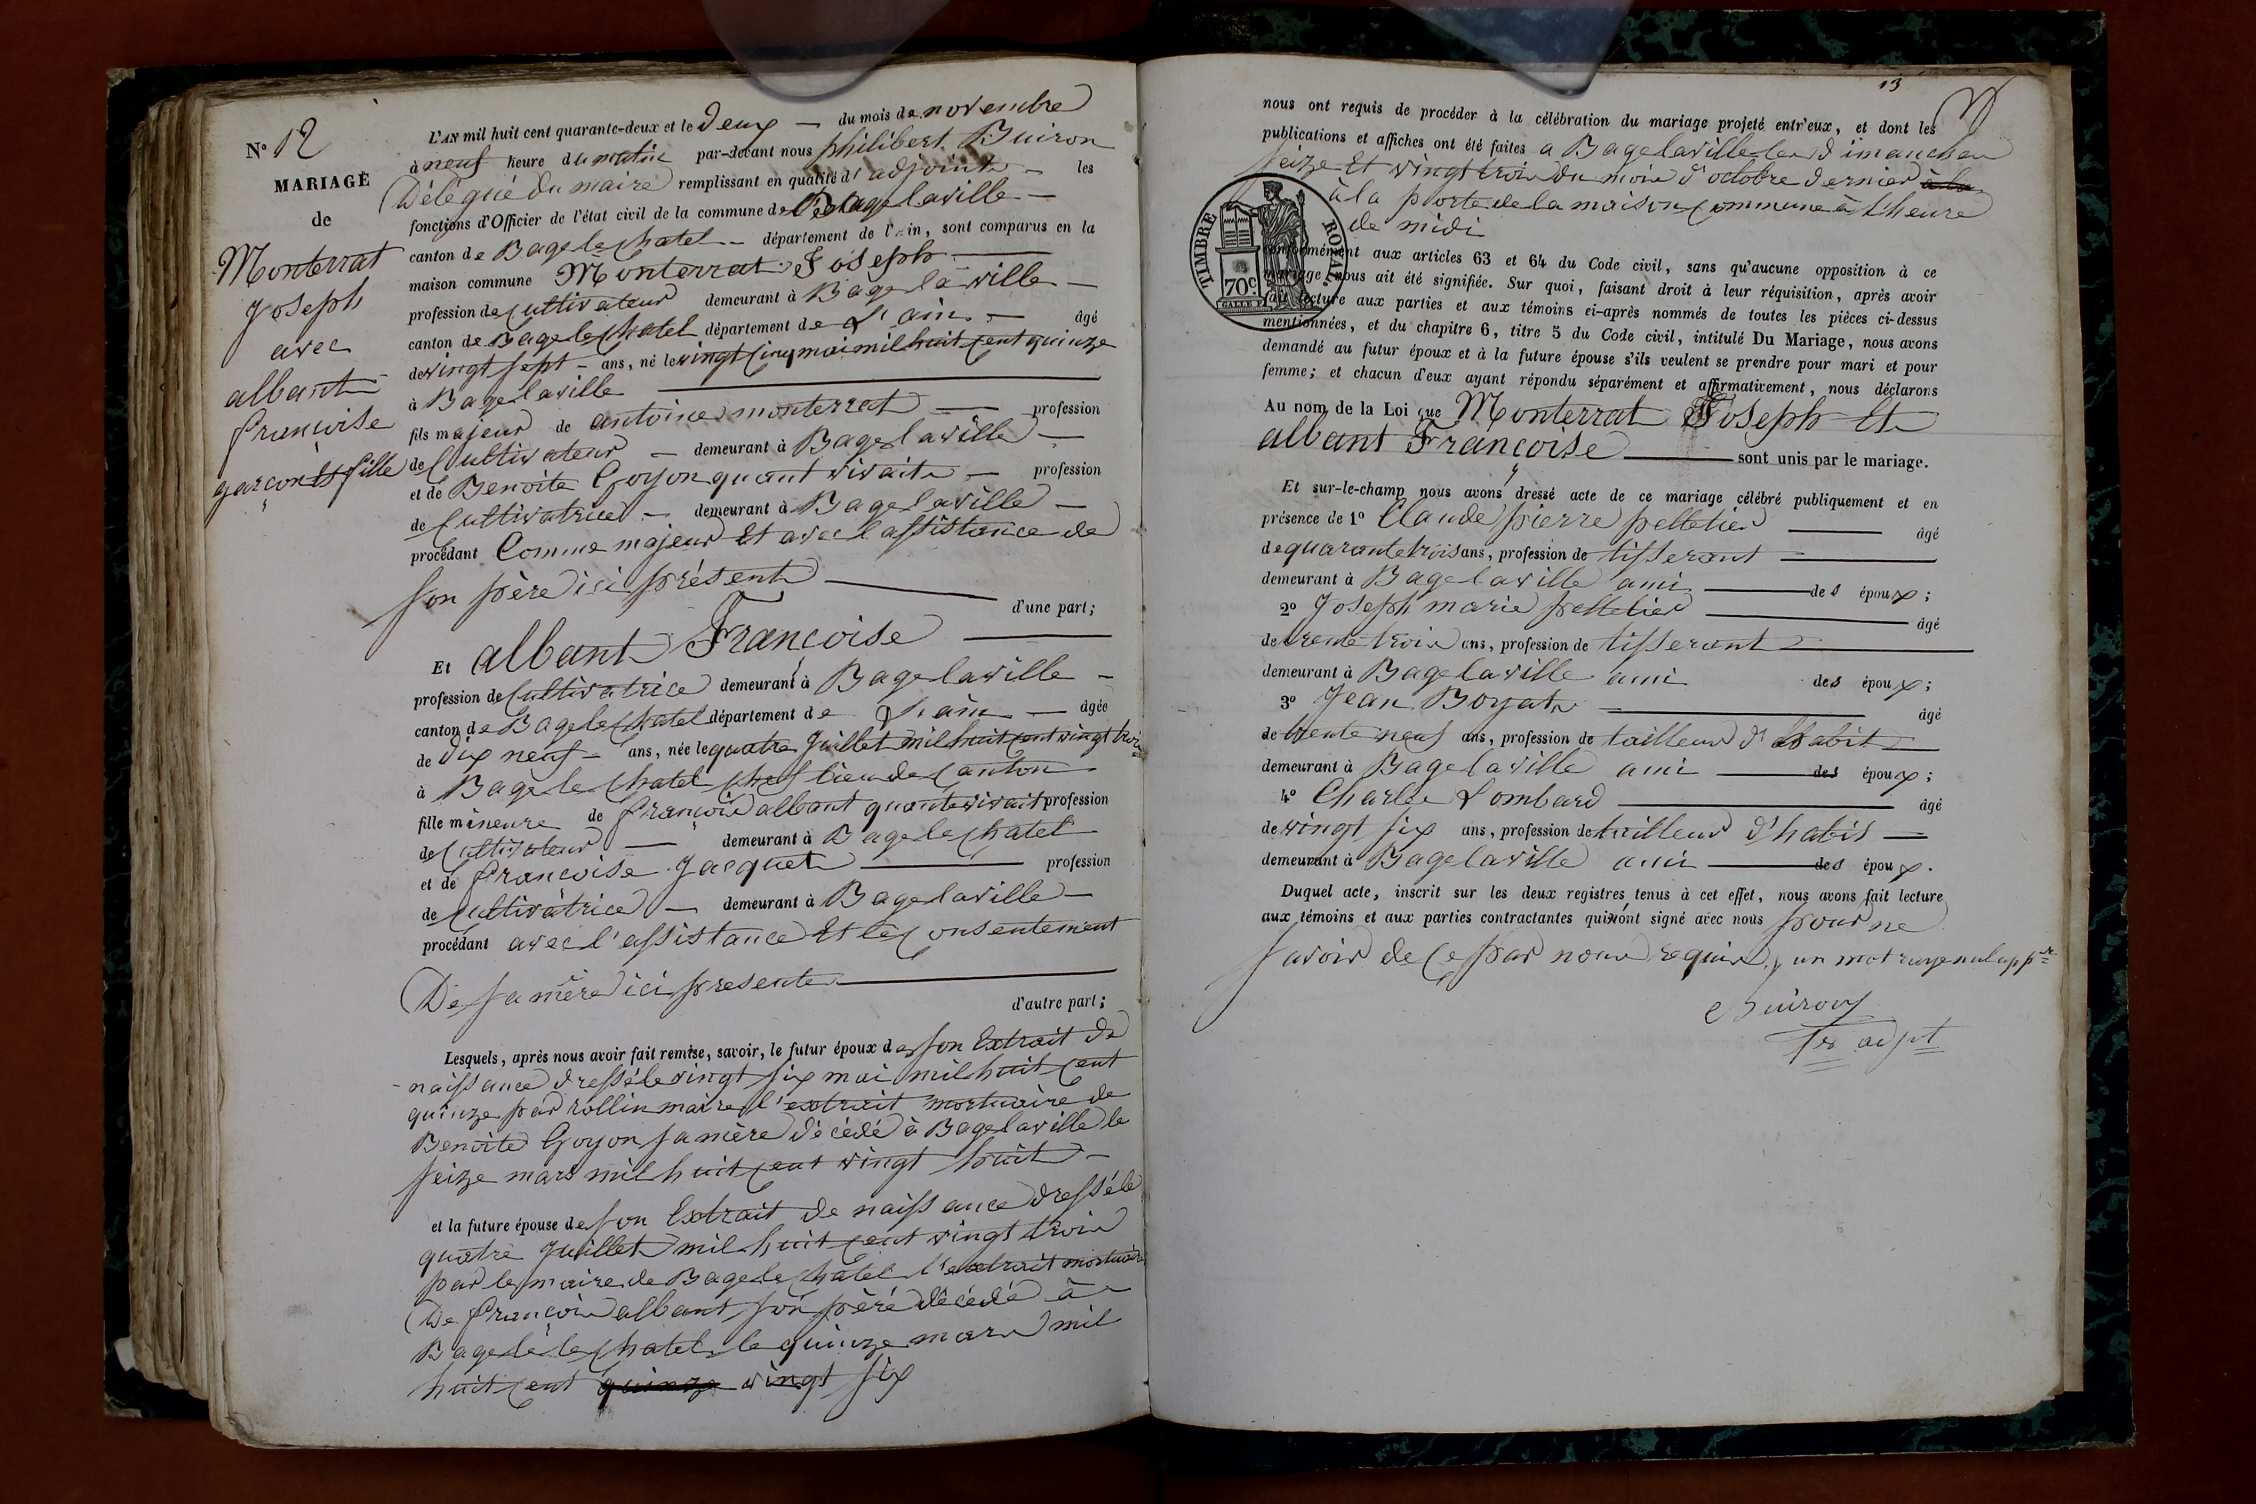 N.o 12
MARIAGE
de
Monterrat
Joseph
avec
albant
françoise
garçon et fille
L'AN mil huit cent quarante-deux et le Deux — du mois de novembre
à neuf heure du matin par-devant nous philibert Buiron
Délégué du maire remplissant en qualité d'adjoint — les
fonctions d'Officier de l'état civil de la commune de Bagelaville —
canton de Bagelechatel — département de l'Ain, sont comparus en la
maison commune Monterrat Joseph
profession de Cultivateur demeurant à Bagelaville —
canton de Bagelechatel département de L'ain — âgé
de vingt sept — ans, né le vingt cinq mai mil huit cent quinze
à Bagelaville
fils majeur de antoine monterrat — profession
de Cultivateur — demeurant à Bagelaville —
et de Benoite Goyon quant vivait — profession
de Cultivatrice — demeurant à Bagelaville —
procédant Comme majeur Et avec l'assistance de
son père ici présent
d'une part;
Et albant Françoise
profession de Cultivatrice demeurant à Bagelaville —
canton de Bagelechatel département de L'ain — âgée
de Dix neuf — ans, née le quatre Juillet mil huit cent vingt trois
à Bagelechatel chef lieu de Canton
fille mineure de françois albant quante vivait profession
de Cultivateur — demeurant à Bagelechatel
et de françoise Jacquet — profession
de Cultivatrice — demeurant à Bagelaville —
procédant avec l'assistance Et le Consentement
De sa mère ici presente
d'autre part;
Lesquels, après nous avoir fait remise, savoir, le futur époux de son Extrait de
naissance dressé le vingt six mai mil huit cent
quinze par rollin maire l'extrait mortuaire de
Benoite Goyon sa mère décédé à Bagelaville le
seize mars mil huit cent vingt huit —
et la future épouse de son Extrait de naissance dressé le
quatre Juillet mil huit cent vingt trois
par le maire de Bagelechatel l'extrait mortuaire
De françois albant son père décédé à
Bagelelechatel le quinze mars mil
huit cent quinze vingt six
13
nous ont requis de procéder à la célébration du mariage projeté entr'eux, et dont les
publications et affiches ont été faites a Bagelaville les dimanches
seize Et vingt trois du mois d'octobre dernier à la
à la porte de la maison commune à l'heure
de midi
TIMBRE ROYAL.
70c.
conformément aux articles 63 et 64 du Code civil, sans qu'aucune opposition à ce
mariage nous ait été signifiée. Sur quoi, faisant droit à leur réquisition, après avoir
fait lecture aux parties et aux témoins ci-après nommés de toutes les pièces ci-dessus
mentionnées, et du chapitre 6, titre 5 du Code civil, intitulé Du Mariage, nous avons
demandé au futur époux et à la future épouse s'ils veulent se prendre pour mari et pour
femme; et chacun d'eux ayant répondu séparément et affirmativement, nous déclarons
Au nom de la Loi que Monterrat Joseph Et
albant Françoise — sont unis par le mariage.
Et sur-le-champ nous avons dressé acte de ce mariage célébré publiquement et en
présence de 1o Claude pierre pelletier — âgé
de quarante trois ans, profession de tisserant
demeurant à Bagelaville ami — des époux;
2o Joseph marie pelletier — âgé
de trente trois ans, profession de tisserant
demeurant à Bagelaville ami des époux;
3o Jean Boyat — âgé
de trente neuf ans, profession de tailleur d'habit
demeurant à Bagelaville ami — des époux;
4o Charle Lombard — âgé
de vingt six ans, profession de tailleur d'habis —
demeurant à Bagelaville ami — des époux.
Duquel acte, inscrit sur les deux registres tenus à cet effet, nous avons fait lecture
aux témoins et aux parties contractantes qui n'ont signé avec nous pour ne
savoir de Ce par nous requis, un mot raye nul app.r
Buiron
adjt